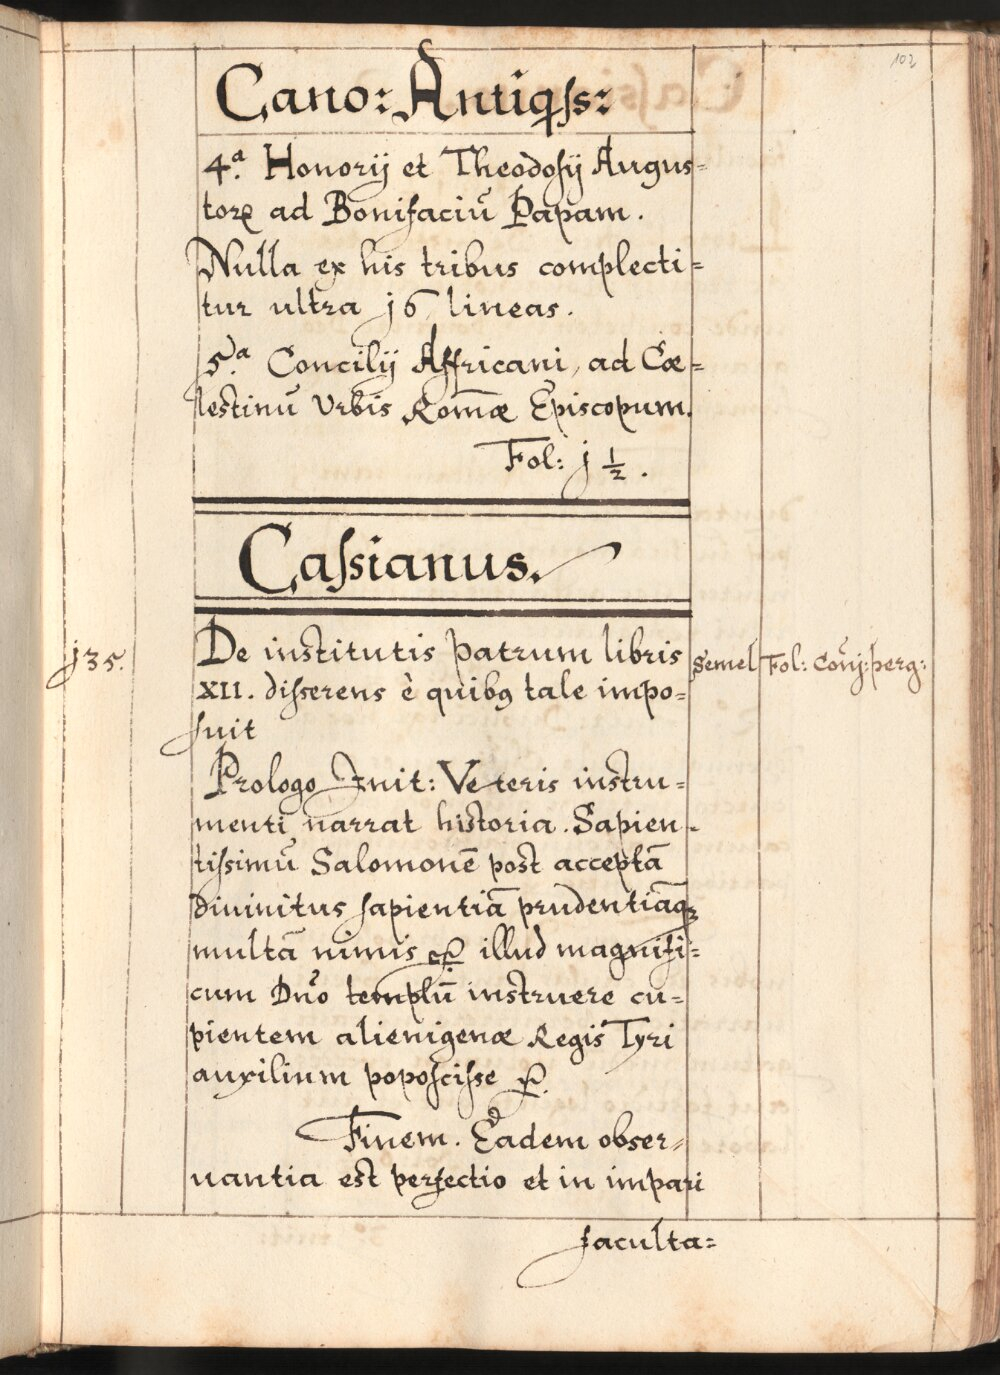 102
Cano: Antiqss:
4.ª Honorij et Theodosij Augus=
torꝝ ad Bonifaciū Papam.
Nulla ex his tribus complecti=
tur ultra j6 lineas.
5.ª Concilij Affricani, ad Cœ=
lestinū Vrbis Rom̄æ Episcopum.
Fol: j ½.
Cassianus.
j35.
De institutis patrum libris
Semel
Fol: Com̄j: perg:
XII. disserens è quibꝰ tale impo=
suit
Prologo Init: Veteris instru=
menti narrat historia. Sapien=
tissimū Salomonē post acceptā
diuinitus sapientiā prudentiāqꝫ
multā nimis &c. illud magnifi=
cum Dn̄o templū instruere cu=
pientem alienigenæ Regis Tyri
auxilium poposcisse &c.
Finem. Eadem obser=
uantia est perfectio et in impari
faculta=